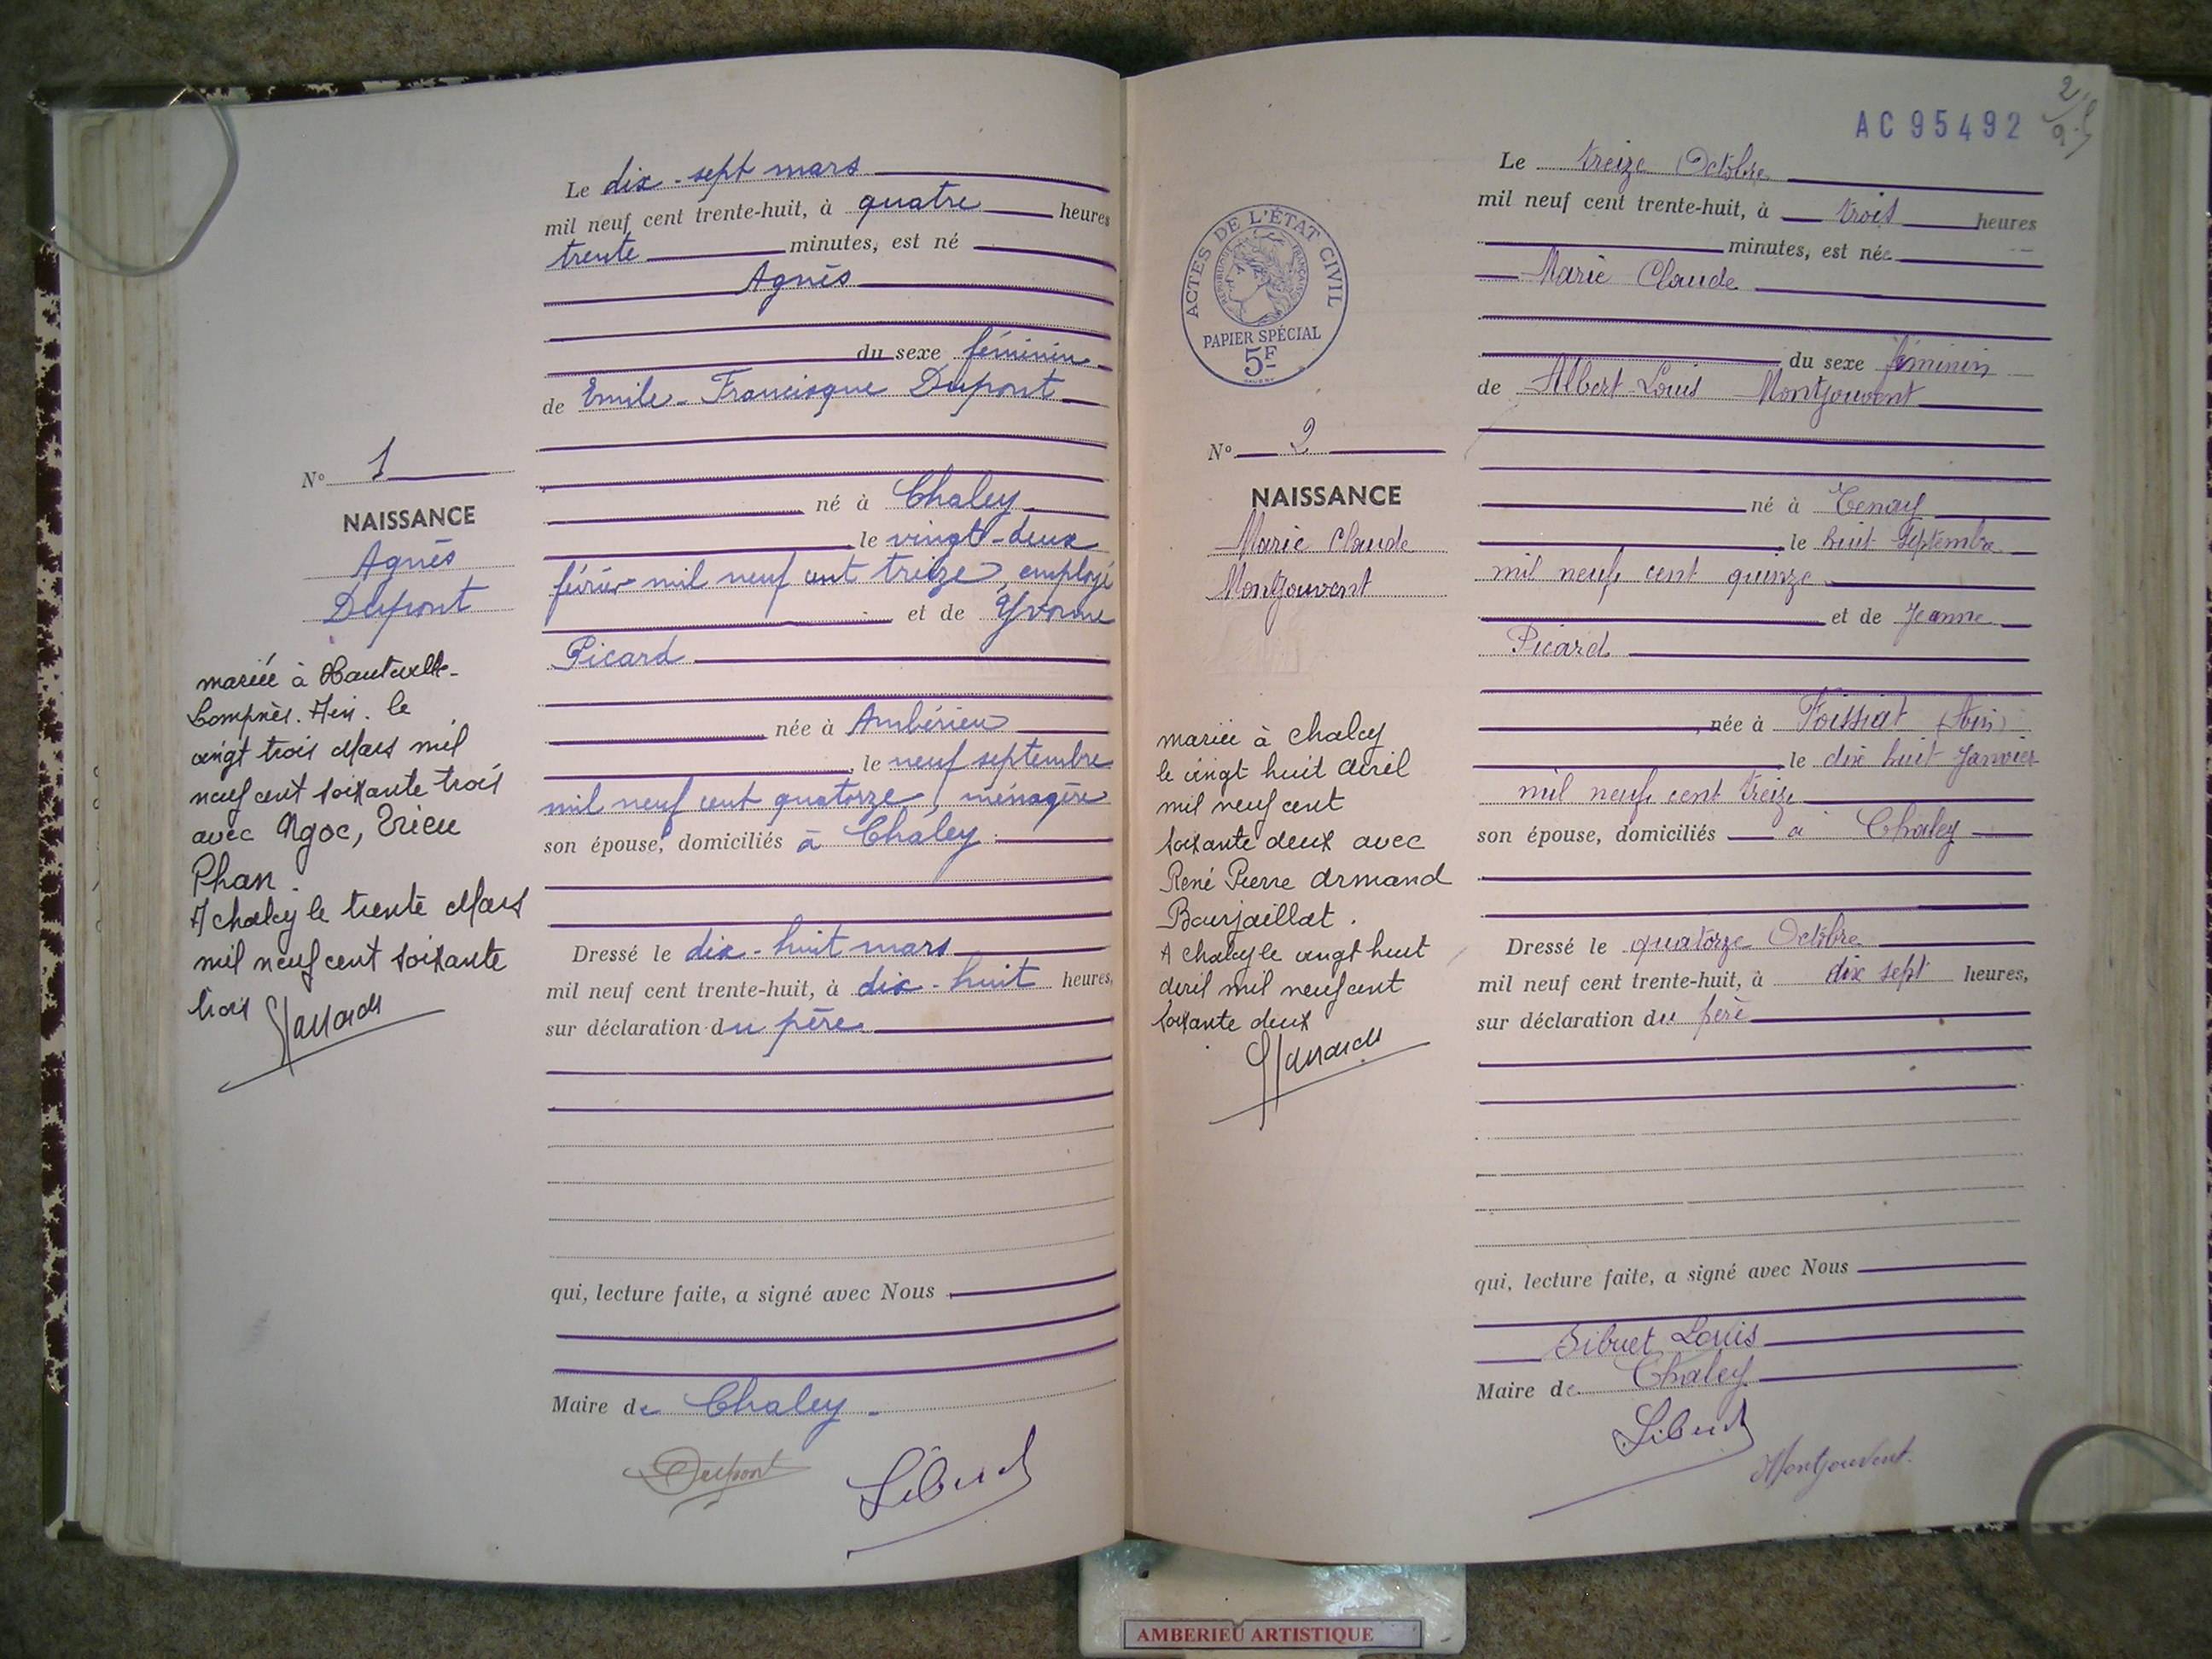 Le dix-sept mars
mil neuf cent trente-huit, à quatre heures
trente minutes, est né
Agnès
du sexe féminin
de Emile-Francisque Dupont
N° 1
né à Chaley
NAISSANCE
le vingt-deux
Agnès
Dupont
février mil neuf cent treize, employé
et de Yvonne
Picard
née à Ambérieu
le neuf septembre
mil neuf cent quatorze, ménagère
son épouse, domiciliés à Chaley
mariée à Hauteville-
Lompnès. Ain. le
vingt trois Mars mil
neuf cent soixante trois
avec Ngoc, Trieu
Phan.
A chaley le trente Mars
mil neuf cent soixante
trois
Dressé le dix-huit mars
mil neuf cent trente-huit, à dix-huit heures,
sur déclaration du père
qui, lecture faite, a signé avec Nous
Maire de Chaley
Dupont
Sibuet
AC 95492
2
Le treize Octobre
mil neuf cent trente-huit, à trois heures
minutes, est née
Marie Claude
du sexe féminin
de Albert Louis Montjouvent
ACTES DE L'ÉTAT CIVIL
RÉPUBLIQUE FRANÇAISE
PAPIER SPÉCIAL
5F
N° 2
NAISSANCE
Marie Claude
Montjouvent
né à Tenay
le huit Septembre
mil neuf cent quinze
et de Jeanne
Picard
née à Foissiat (Ain)
le dix huit Janvier
mil neuf cent treize
son épouse, domiciliés à Chaley
mariée à chaley
le vingt huit avril
mil neuf cent
soixante deux avec
René Pierre Armand
Bourjaillat.
A chaley le vingt huit
avril mil neuf cent
soixante deux
Dressé le quatorze Octobre
mil neuf cent trente-huit, à dix sept heures,
sur déclaration du père
qui, lecture faite, a signé avec Nous
Sibuet Louis
Maire de Chaley
Sibuet
Montjouvent
AMBERIEU ARTISTIQUE